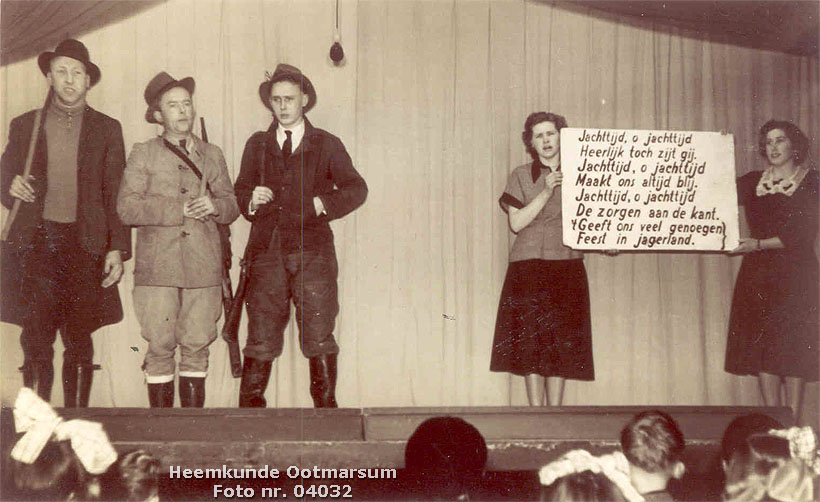 Jachttijd, o jachttijd
Heerlijk toch zijt gij.
Jachttijd, o jachttijd
Maakt ons altijd blij.
Jachttijd, o jachttijd
De zorgen aan de kant.
't Geeft ons veel genoegen
Feest in jagerland.
Heemkunde Ootmarsum
Foto nr. 04032